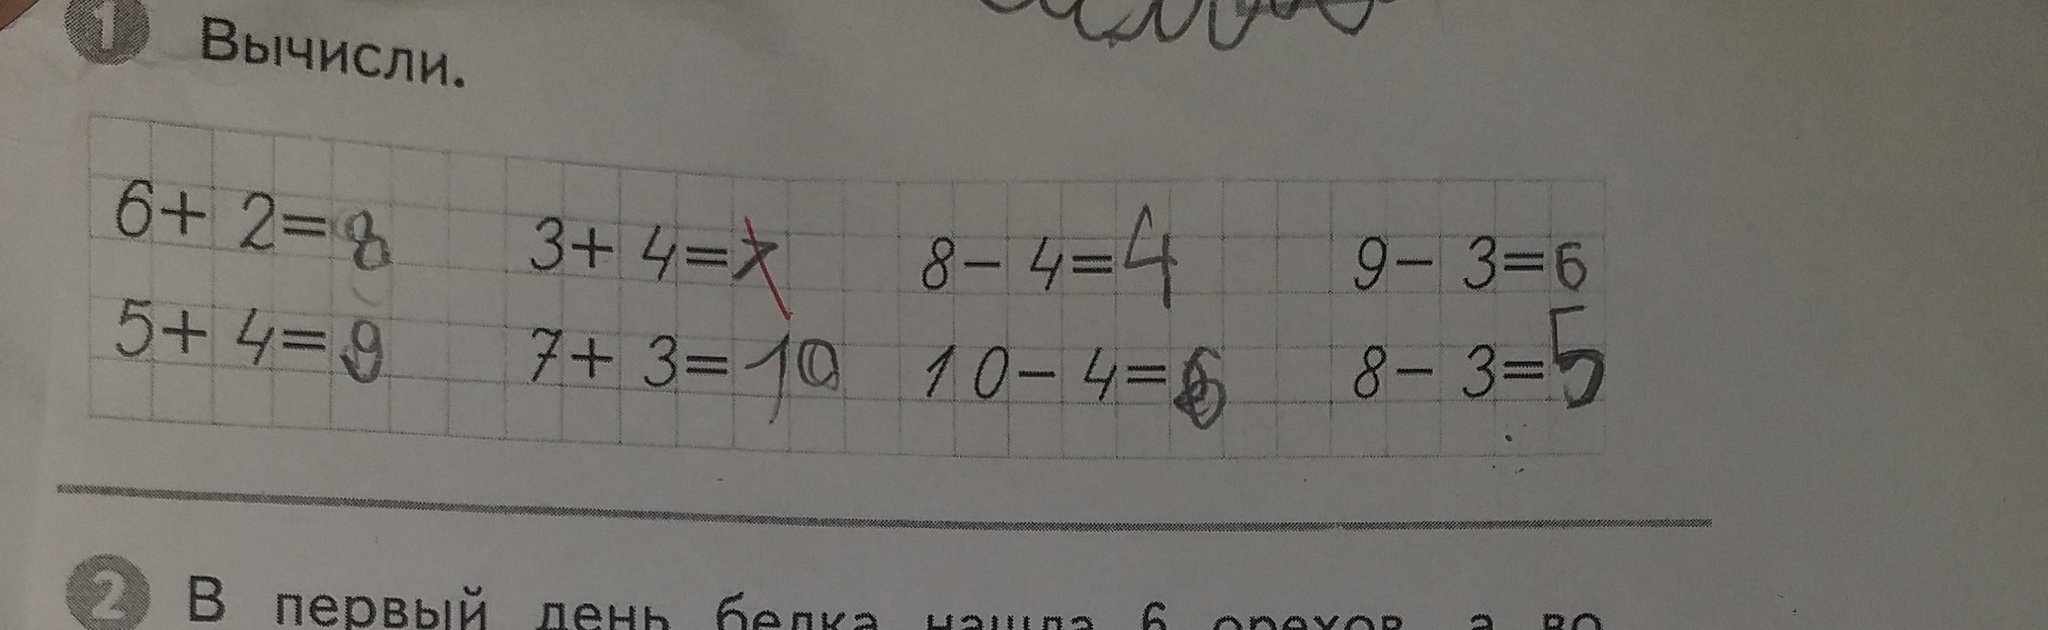 1 Вычисли.
6+ 2=8 3+ 4=7 8- 4=4 9- 3=6
5+ 4=9 7+ 3=10 10- 4=6 8- 3=5
2 В первый день белка нашла 6 орехов, а во